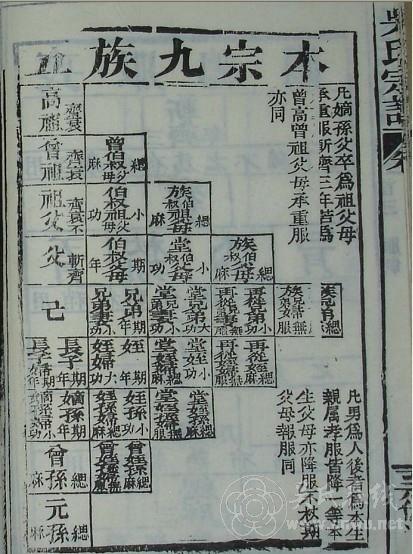 吳氏宗譜 卷
本宗九族
凡嫡孫父卒為祖父母
承重服斬齊三年若為
曾高曾祖父母承重服
亦同
凡男為人後者為本生
親属孝服皆降一等本
生父母亦降服不杖期
父母報服同
高祖 齊衰
曾祖 齊衰
曾伯叔祖父母 緦麻
祖父 齊衰不
伯叔祖父母 小功
族伯叔祖父母 緦麻
父 斬齊
伯叔父母 期年
堂伯叔父母 小功
族伯叔父母 緦麻
己
兄弟 期年
兄弟妻 小功
堂兄弟 大功
堂兄弟妻
再從兄弟 小功
再從兄弟妻無服
族兄弟 緦麻
族兄弟妻無服
長子 期年
長子婦 期年
姪 期年
姪婦 大功
堂姪 小功
堂姪婦 緦麻
再從姪 緦麻
再從姪婦無服
嫡孫 期年
嫡孫婦 小功
姪孫 小功
姪孫婦 緦麻
堂姪孫 緦麻
堂姪孫婦無服
曾孫 緦麻
曾姪孫 緦麻
曾姪孫婦無服
元孫 緦麻